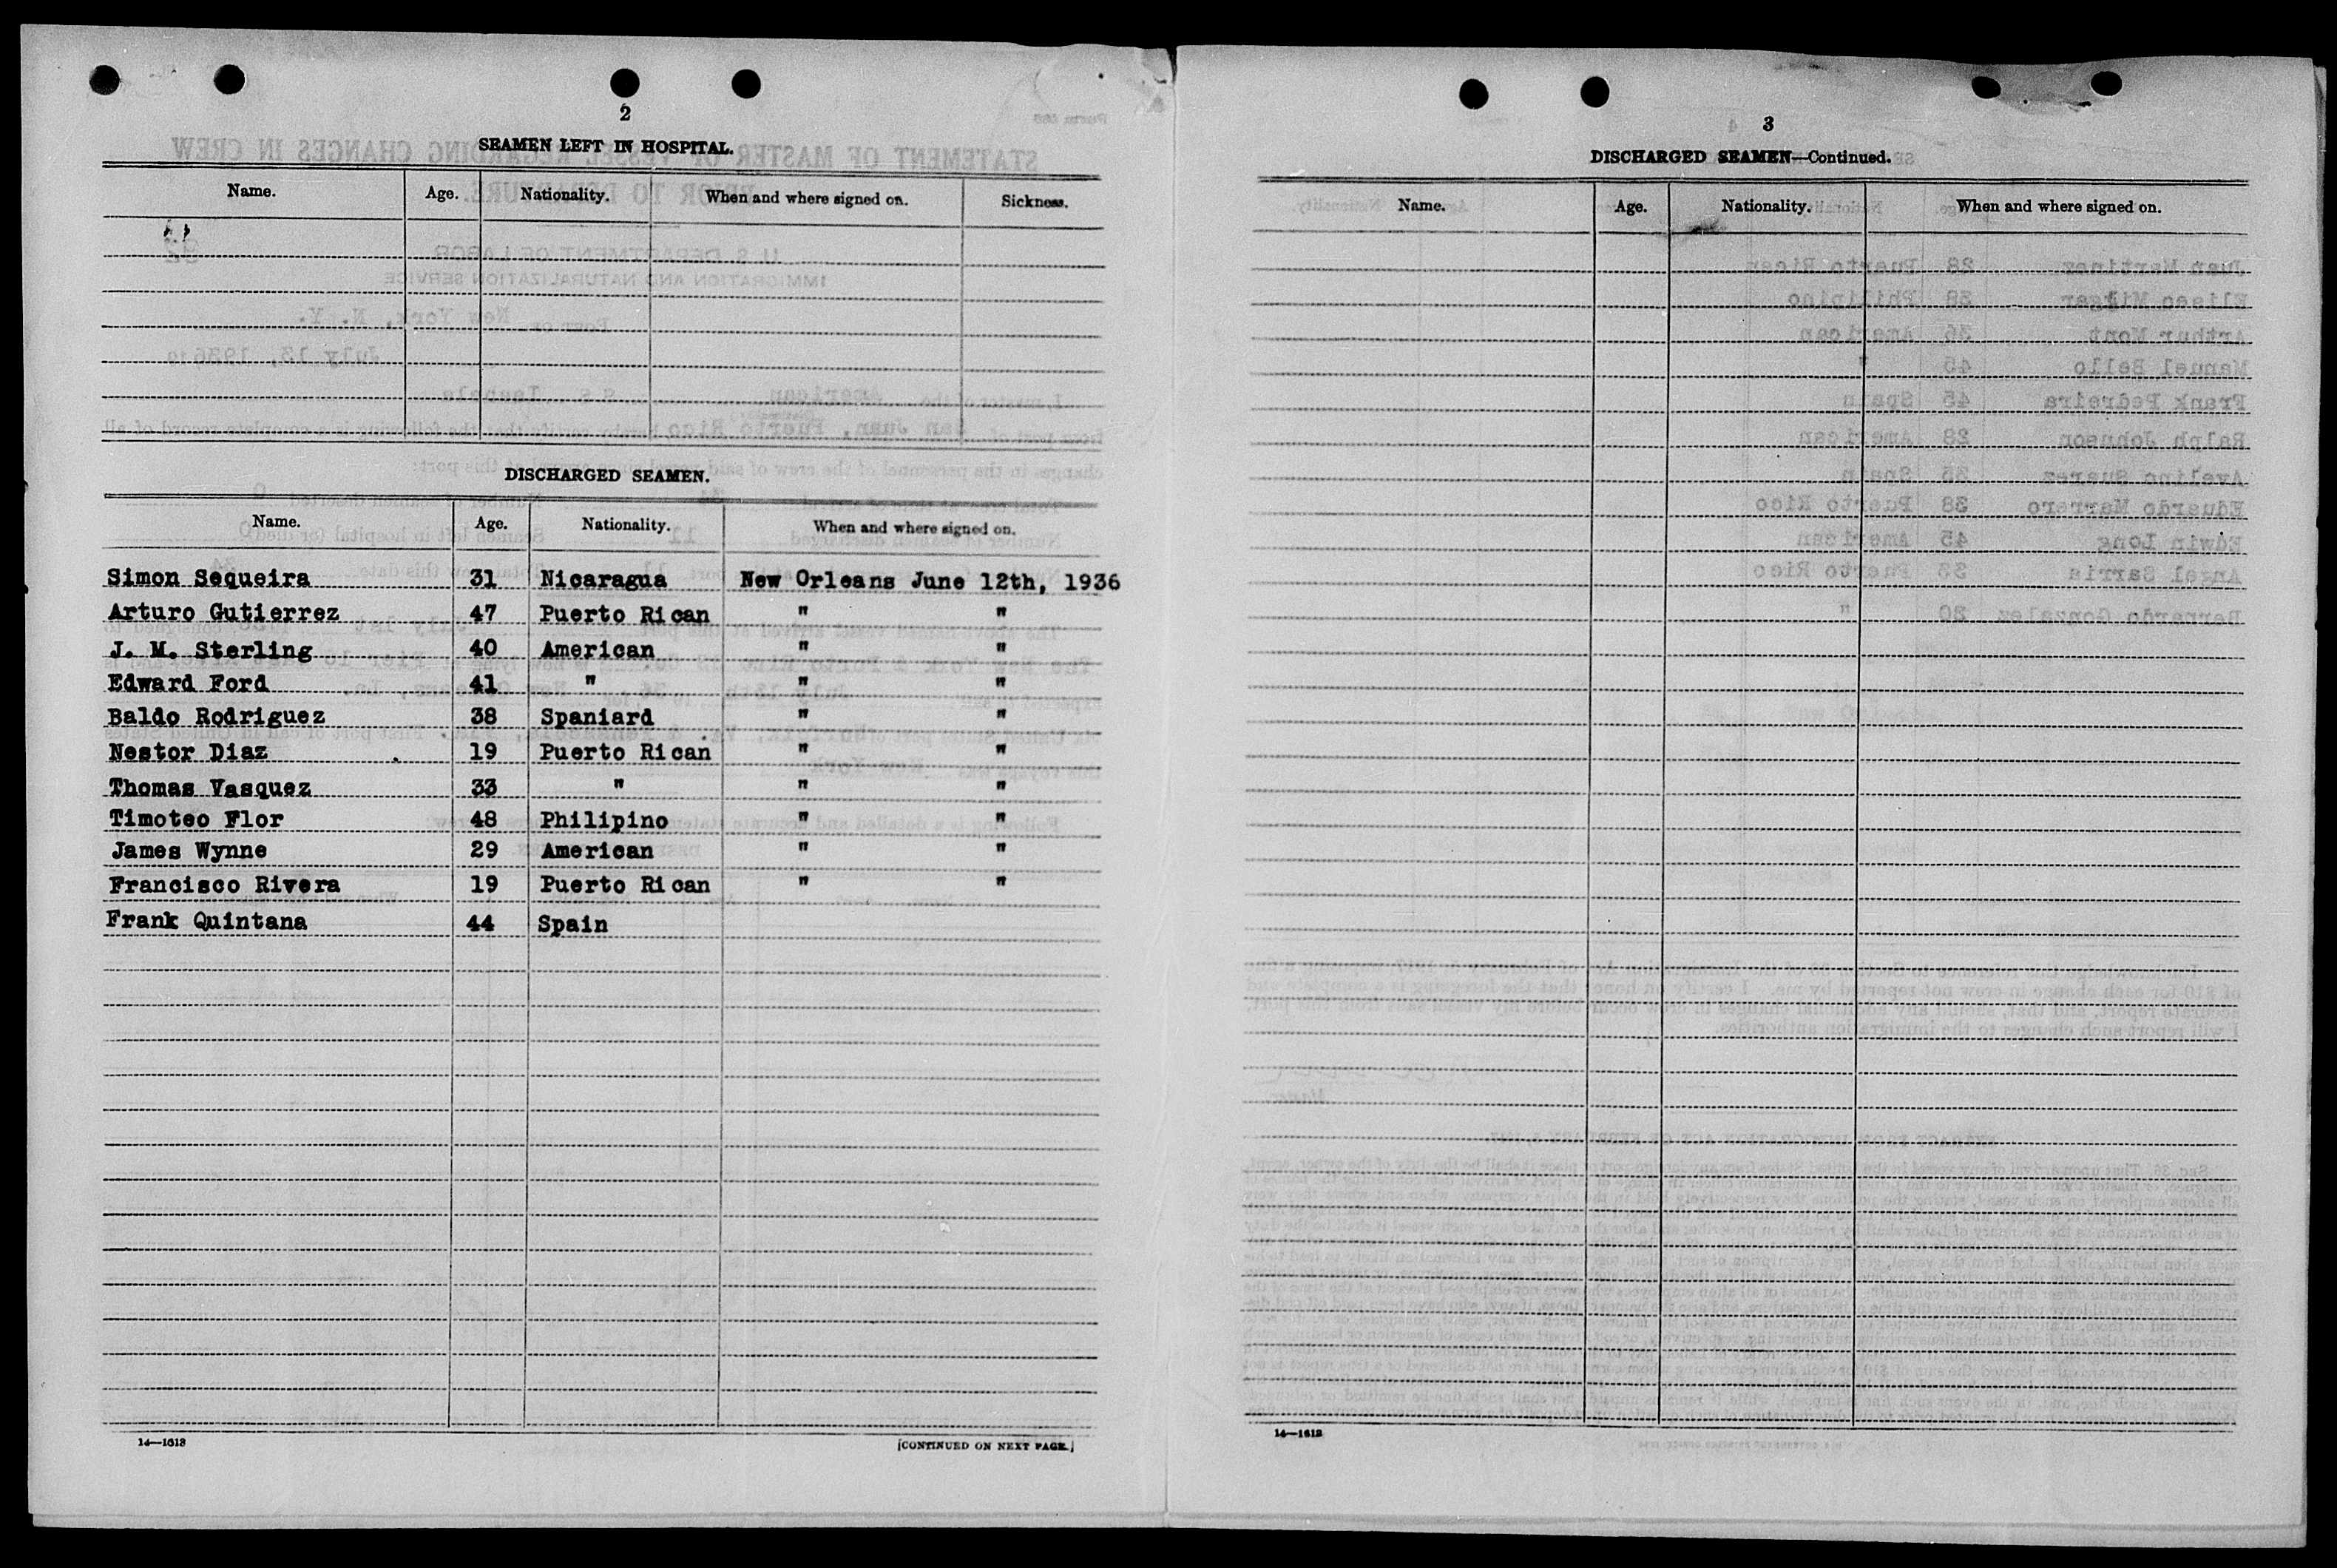 2
SEAMEN LEFT IN HOSPITAL.
Name. Age. Nationality. When and where signed on. Sickness.
DISCHARGED SEAMEN.
Name. Age. Nationality. When and where signed on.
Simon Sequeira 31 Nicaragua New Orleans June 12th, 1936
Arturo Gutierrez 47 Puerto Rican " "
J. M. Sterling 40 American " "
Edward Ford 41 " " "
Baldo Rodriguez 38 Spaniard " "
Nestor Diaz 19 Puerto Rican " "
Thomas Vasquez 33 " " "
Timoteo Flor 48 Philipino " "
James Wynne 29 American " "
Francisco Rivera 19 Puerto Rican " "
Frank Quintana 44 Spain
14—1613
[CONTINUED ON NEXT PAGE.]
3
DISCHARGED SEAMEN—Continued.
Name. Age. Nationality. When and where signed on.
14—1613